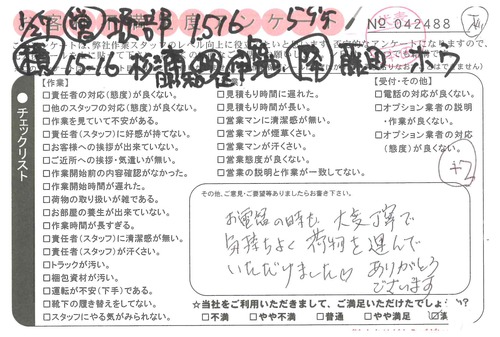 No 042488
チェックリスト
【作業】
□責任者の対応(態度)が良くない。
□他のスタッフの対応(態度)が良くない。
□作業を見ていて不安がある。
□責任者(スタッフ)に好感が持てない。
□お客様への挨拶が出来ていない。
□ご近所への挨拶・気遣いが無い。
□作業開始前の内容確認がなかった。
□作業開始時間が遅れた。
□荷物の取り扱いが雑である。
□お部屋の養生が出来ていない。
□作業時間が長すぎる。
□責任者(スタッフ)に清潔感が無い。
□責任者(スタッフ)が汗くさい。
□トラックが汚い。
□梱包資材が汚い。
□運転が不安(下手)である。
□靴下の履き替えをしてない。
□スタッフにやる気がみられない。
□見積もり時間に遅れた。
□見積もり時間が長い。
□営業マンに清潔感が無い。
□営業マンが煙草くさい。
□営業マンが汗くさい。
□営業態度が良くない。
□営業の説明と作業が一致してない。
【受付・その他】
□電話の対応が良くない。
□オプション業者の説明
・作業が良くない。
□オプション業者の対応
(態度)が良くない。
+2
その他、ご意見・ご要望等ありましたらお書き下さい。
お電話の時も 大変丁寧で
気持ちよく荷物を運んで
いただけました♡ ありがとう
ございます
☆当社をご利用いただきまして、ご満足いただけたでしょうか?
□不満 □やや不満 □普通 □やや満足